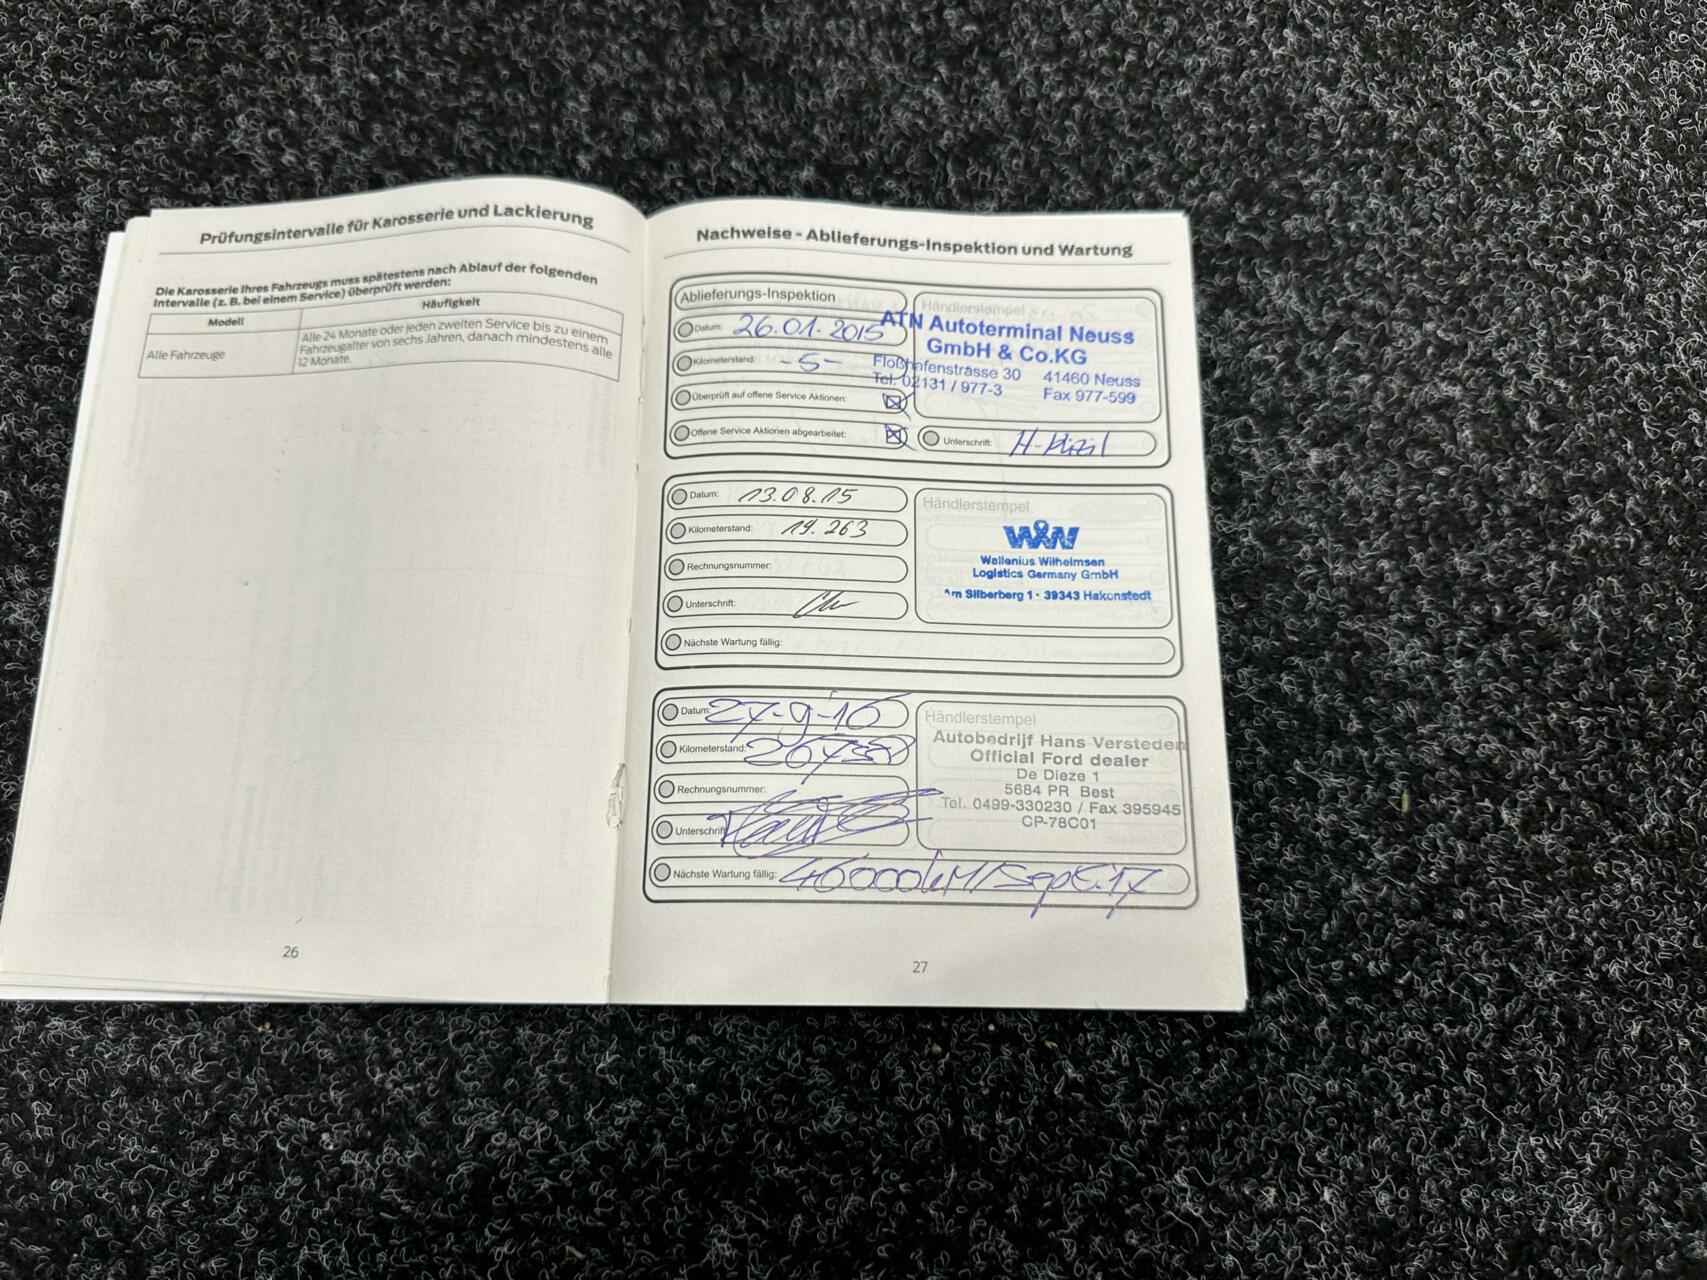 Prüfungsintervalle für Karosserie und Lackierung
Die Karosserie Ihres Fahrzeugs muss spätestens nach Ablauf der folgenden
Intervalle (z. B. bei einem Service) überprüft werden:
Modell
Häufigkeit
Alle Fahrzeuge
Alle 24 Monate oder jeden zweiten Service bis zu einem
Fahrzeugalter von sechs Jahren, danach mindestens alle
12 Monate.
26
Nachweise - Ablieferungs-Inspektion und Wartung
Ablieferungs-Inspektion
Datum: 26.01.2015
Kilometerstand: -5-
Überprüft auf offene Service Aktionen:
Offene Service Aktionen abgearbeitet:
Händlerstempel
ATN Autoterminal Neuss
GmbH & Co.KG
Floßhafenstrasse 30 41460 Neuss
Tel. 02131 / 977-3 Fax 977-599
Unterschrift:
Datum: 13.08.15
Kilometerstand: 19.263
Rechnungsnummer:
Unterschrift:
Nächste Wartung fällig:
Händlerstempel
W&W
Wallenius Wilhelmsen
Logistics Germany GmbH
Am Silberberg 1 - 39343 Hakenstedt
Datum: 27-9-16
Kilometerstand:
Rechnungsnummer:
Unterschrift
Nächste Wartung fällig: 46000kM/Sept.17
Händlerstempel
Autobedrijf Hans Versteden
Official Ford dealer
De Dieze 1
5684 PR Best
Tel. 0499-330230 / Fax 395945
CP-78C01
27